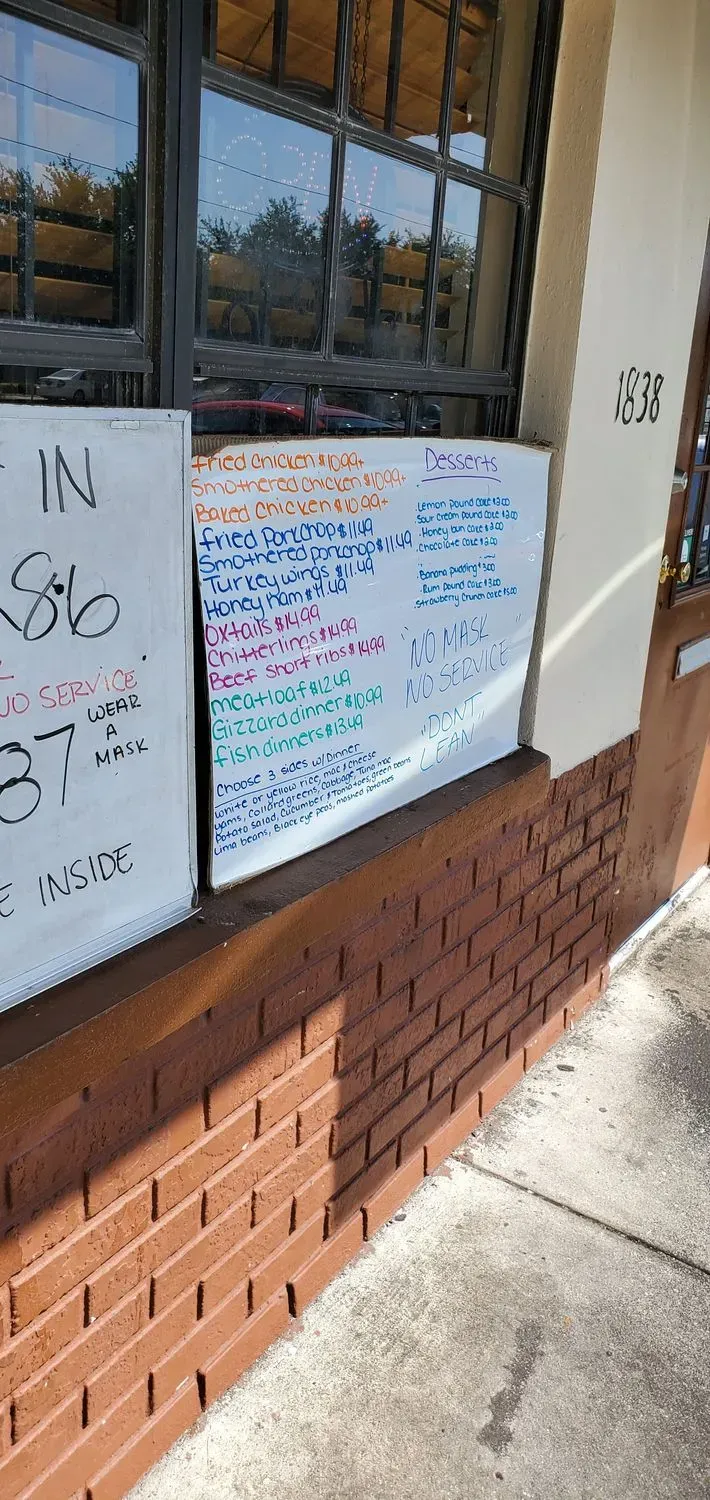 OPEN
1838
IN
86
NO SERVICE
37
WEAR
A
MASK
INSIDE
Fried Chicken $10.99+
Smothered Chicken $10.99+
Baked Chicken $10.99+
fried Porkchop $11.49
Smothered porkchop $11.49
Turkey wings $11.49
Honey ham $11.49
Oxtails $14.99
Chitterlings $14.99
Beef short ribs $14.99
meatloaf $12.49
Gizzard dinner $10.99
fish dinners $13.49
Choose 3 sides w/ Dinner
White or yellow rice, mac & cheese
yams, Collard greens, Cabbage, Tuna mac
Potato salad, Cucumber & Tomatoes, green beans
Lima beans, Black eye peas, mashed Potatoes
Desserts
Lemon pound cake $2.00
Sour cream pound cake $2.00
Honey bun cake $2.00
Chocolate cake $2.00
Banana pudding $3.00
Rum Pound cake $3.00
Strawberry Crunch cake $5.00
"NO MASK "
NO SERVICE
"DON'T "
LEAN